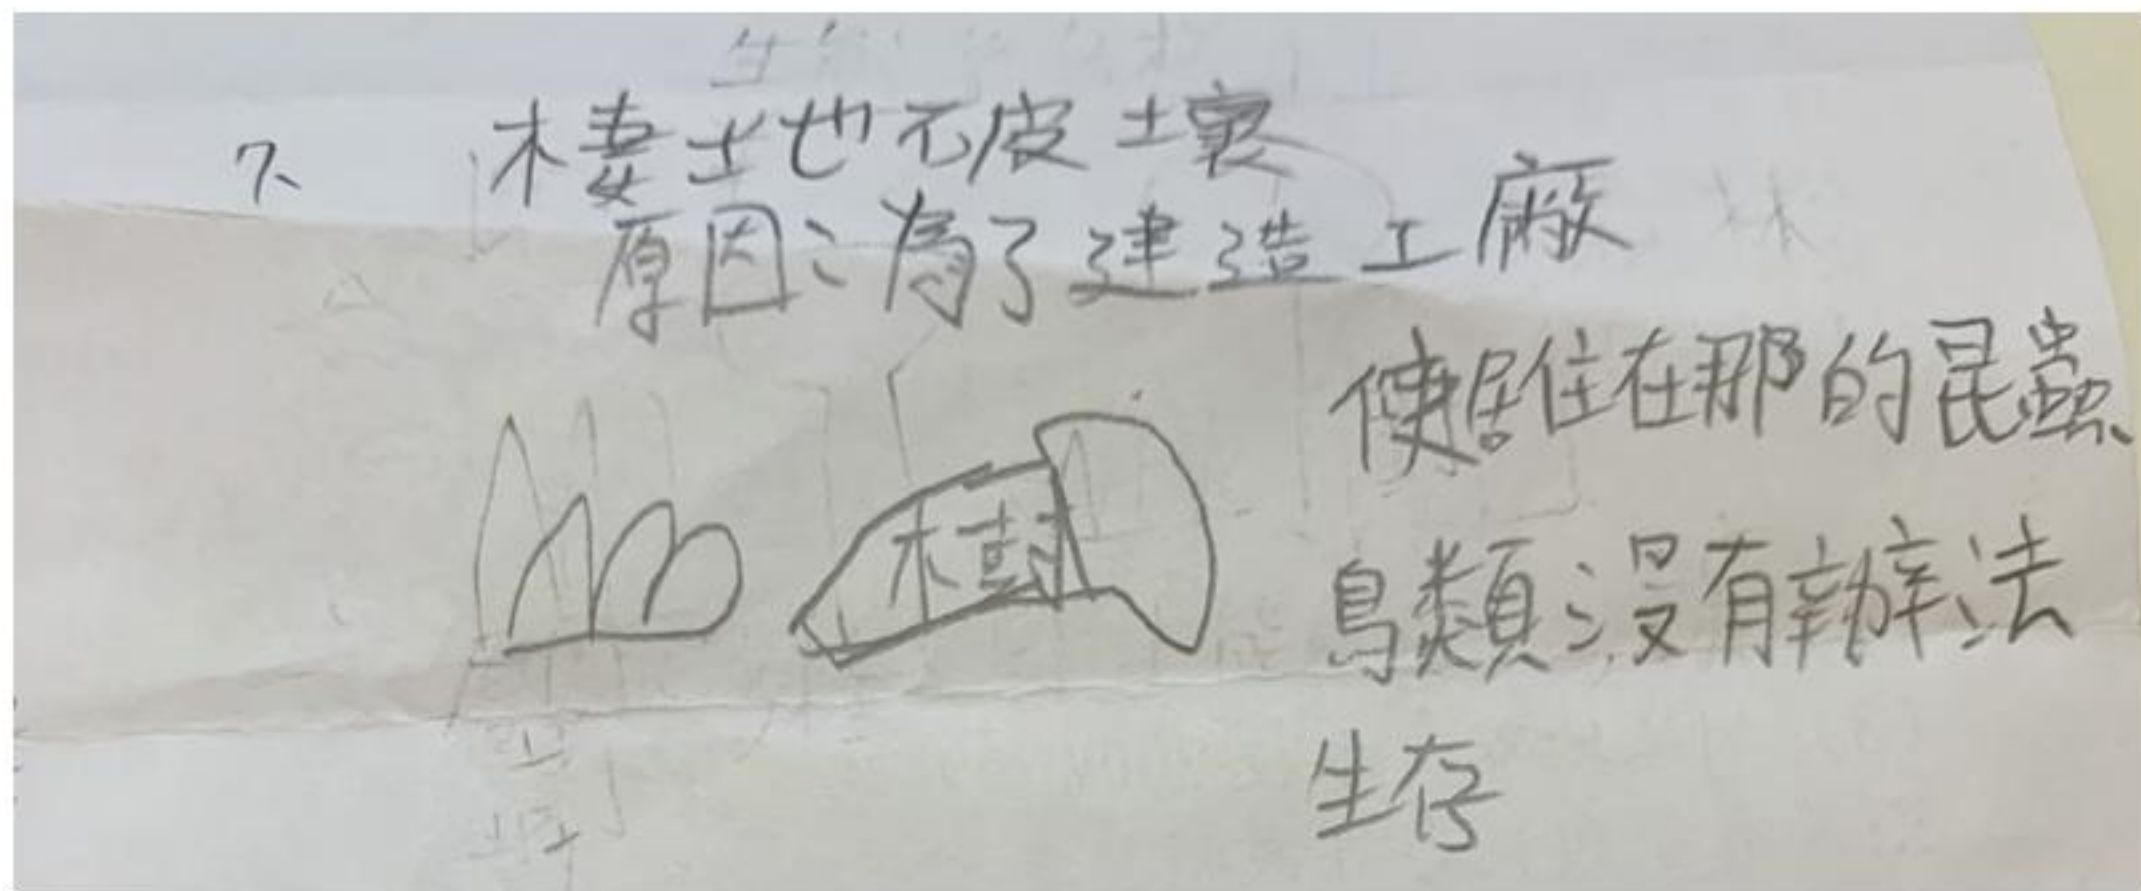 7、
棲地破壞
原因：為了建造工廠
使居住在那的昆蟲、
樹
鳥類沒有辦法
生存